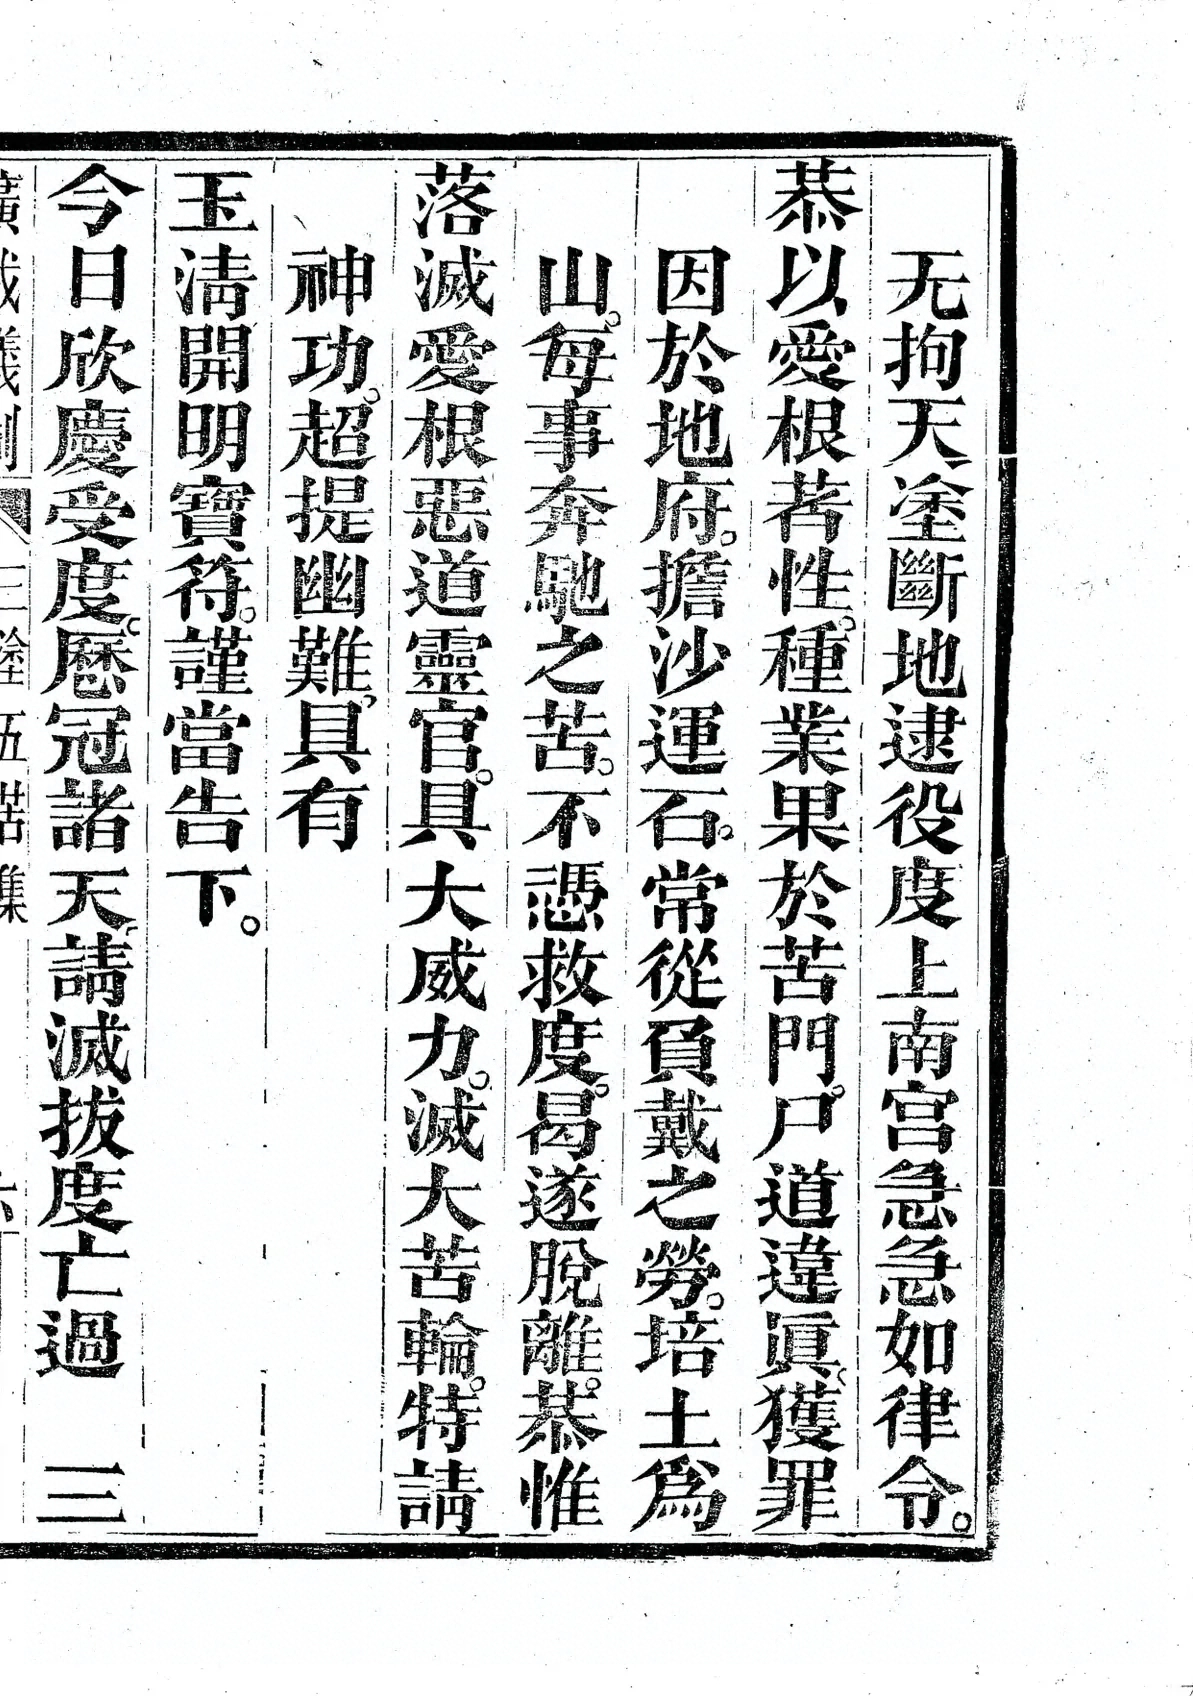 无拘天塗斷地逮役度上南宮急急如律令。
恭以愛根著性。種業果於苦門。尸道違眞、獲罪
因於地府。擔沙運石。常從負戴之勞。培土爲
山。每事奔馳之苦。不憑救度。曷遂脫離。恭惟
落滅愛根惡道靈官。具大威力。滅大苦輪。特請
神功。超提幽難、具有
玉清開明寶符。謹當告下。
今日欣慶受度。歷冠諸天、請滅拔度亡過　三
廣成儀制　三塗五苦集　六